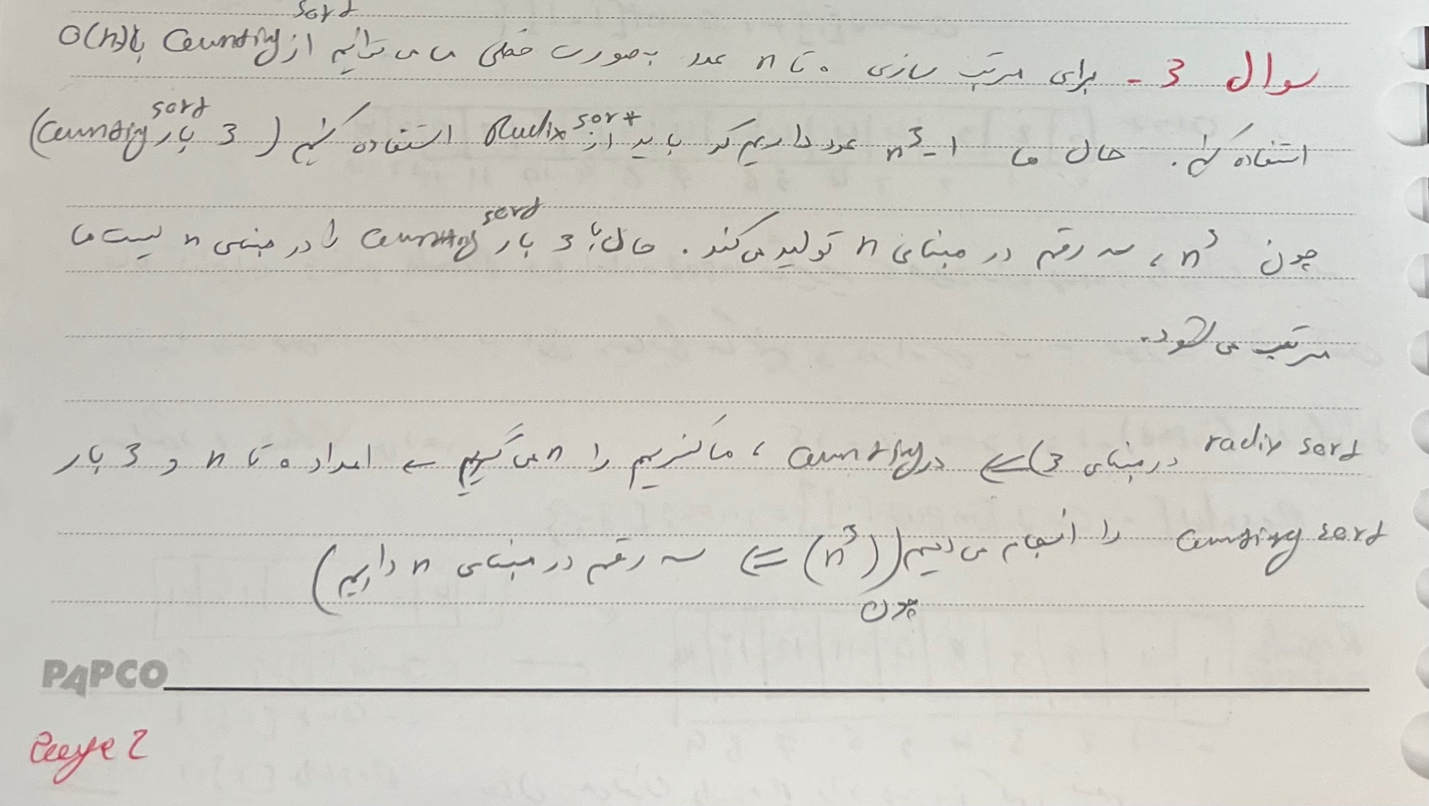 سوال 3 - برای مرتب سازی 0 تا n عدد بصورت خطی ما می توانیم از Counting sort با O(n)
استفاده کنیم. حال ما n³-1 عدد داریم که باید از Radix sort استفاده کنیم (3 بار Counting sort)
چون n³، سه رقم در مبنای n تولید می‌کند. حال با 3 بار Counting sort را در مبنای n لیست ما
مرتب می شود.
radix sort در مبنای 3) ⇐ در Counting، ماکزیمم را n می گیریم ← اعداد 0 تا n و 3 بار
Counting sort را انجام می دهیم (چون (n³) ⇐ سه رقم در مبنای n داریم)
PAPCO
Page 2